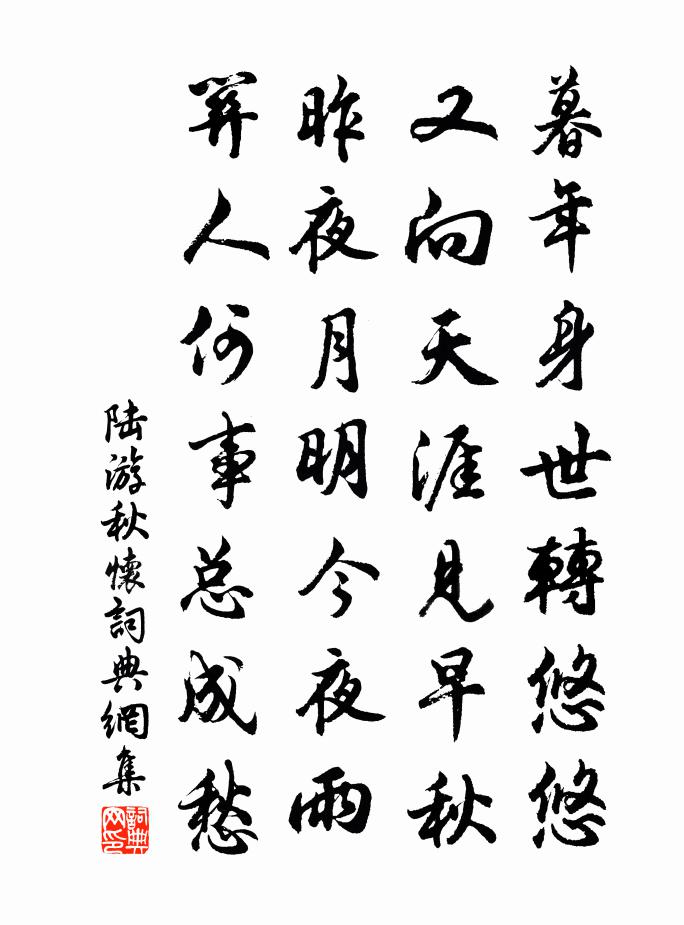 暮年身世轉悠悠
又向天涯見早秋
昨夜月明今夜雨
關人何事总成愁
陆游秋懷詞典網集
詞典网印